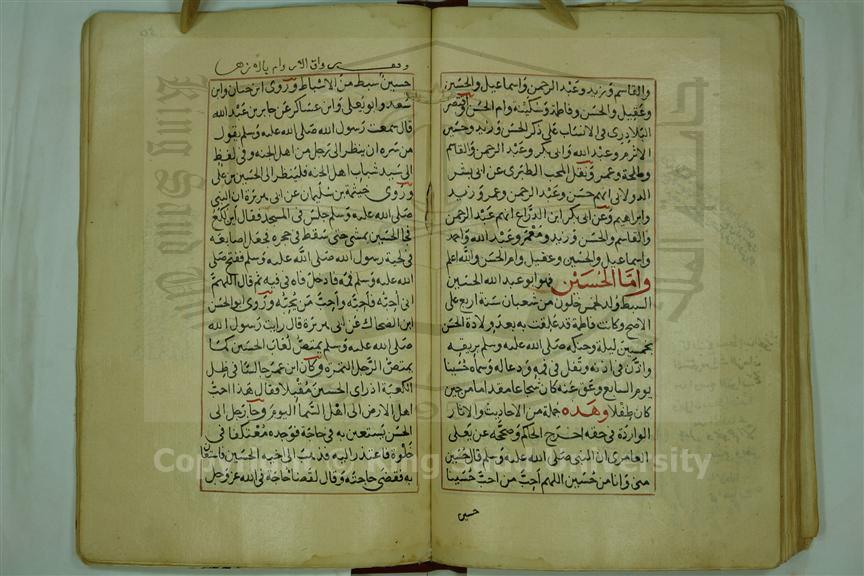 والقاسم وزيد وعبد الرحمن واسماعيل والحسين
وعقيل والحسن وفاطمة وسكينة وام الحسن واقتصر
البلاذرى فى الانساب على ذكر الحسن وزيد وحسين
الاثرم وعبد الله وابى بكر وعبد الرحمن والقاسم
وطلحة وعمر ونقل المحب الطبرى عن ابى بشر
الدولابى انهم حسن وعبد الرحمن وعمر وزيد
وابراهيم وعن ابى بكر ابن الدراع انهم عبد الرحمن
والقاسم والحسن وزيد ومعمر وعبد الله واحمد
واسماعيل والحسين وعقيل وام الحسن والله اعلم
واما الحسين فهو ابو عبد الله الحسين
السبط ولد لخمس خلون من شعبان سنة اربع على
الاصح وكانت فاطمة قد علقت به بعد ولادة الحسن
بخمسين ليلة وحنكه صلى الله عليه وسلم بريقه
واذن فى اذنه وتفل فى فمه ودعا له وسماه حسينا
يوم السابع وعق عنه كان شجاعا مقداما من حين
كان طفلا وهذه جملة من الاحاديث والاثار
الواردة فى حقه اخرج الحاكم وصححه عن يعلى
العامرى ان النبى صلى الله عليه وسلم قال حسين
منى وانا من حسين اللهم احب من احب حسينا
حسين
حسين سبط من الاسباط وروى ابن حبان وابن
سعد وابو يعلى وابن عساكر عن جابر بن عبد الله
قال سمعت رسول الله صلى الله عليه وسلم يقول
من سره ان ينظر الى رجل من اهل الجنه وفى لفظ
الى سيد شباب اهل الجنه فلينظر الى الحسين بن على
وروى خيثمة بن سليمان عن ابى هريرة ان النبى
صلى الله عليه وسلم جلس فى المسجد فقال اين لكع
فجا الحسين يمشى حتى سقط فى حجره فجعل اصابعه
فى لحية رسول الله صلى الله عليه وسلم ففتح صلى
الله عليه وسلم فمه فادخل فاه فى فيه ثم قال اللهم
انى احبه فاحبه واحب من يحبه وروى ابو الحسن
ابن الضحاك عن ابى هريرة قال رايت رسول الله
صلى الله عليه وسلم يمتص لعاب الحسين كما
يمتص الرجل التمرة وكان ابن عمر جالسا فى ظل
الكعبة اذ راى الحسين مقبلا فقال هذا احب
اهل الارض الى اهل السما اليوم وجا رجل الى
الحسن يستعين به فى حاجة فوجده معتكفا فى
خلوة فاعتذر اليه فذهب الى اخيه الحسين فاستعان
به فقضى حاجته وقال لقضا حاجة فى الله عز وجل
Copyright © King Saud University